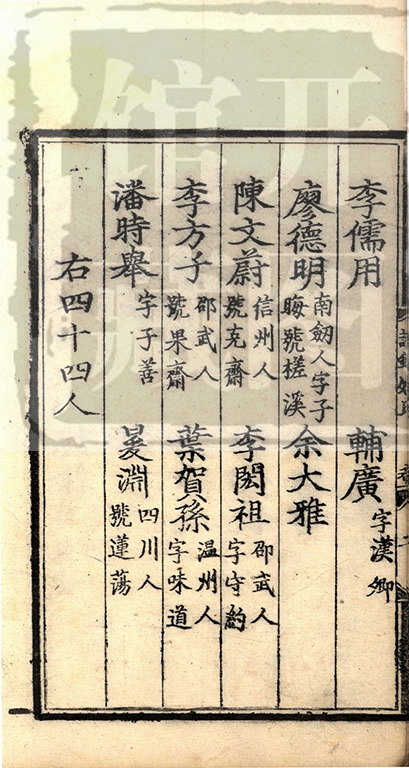 李儒用　輔廣字漢卿
廖德明南劒人字子晦號槎溪　余大雅
陳文蔚信州人號克齋　李閎祖邵武人字守約
李方子邵武人號果齋　葉賀孫温州人字味道
潘時舉字子善　㬊淵四川人號蓮蕩
右四十四人